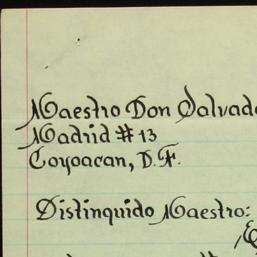 Maestro Don Salvado
Madrid # 13
Coyoacan, D.F.
Distinguido Maestro: